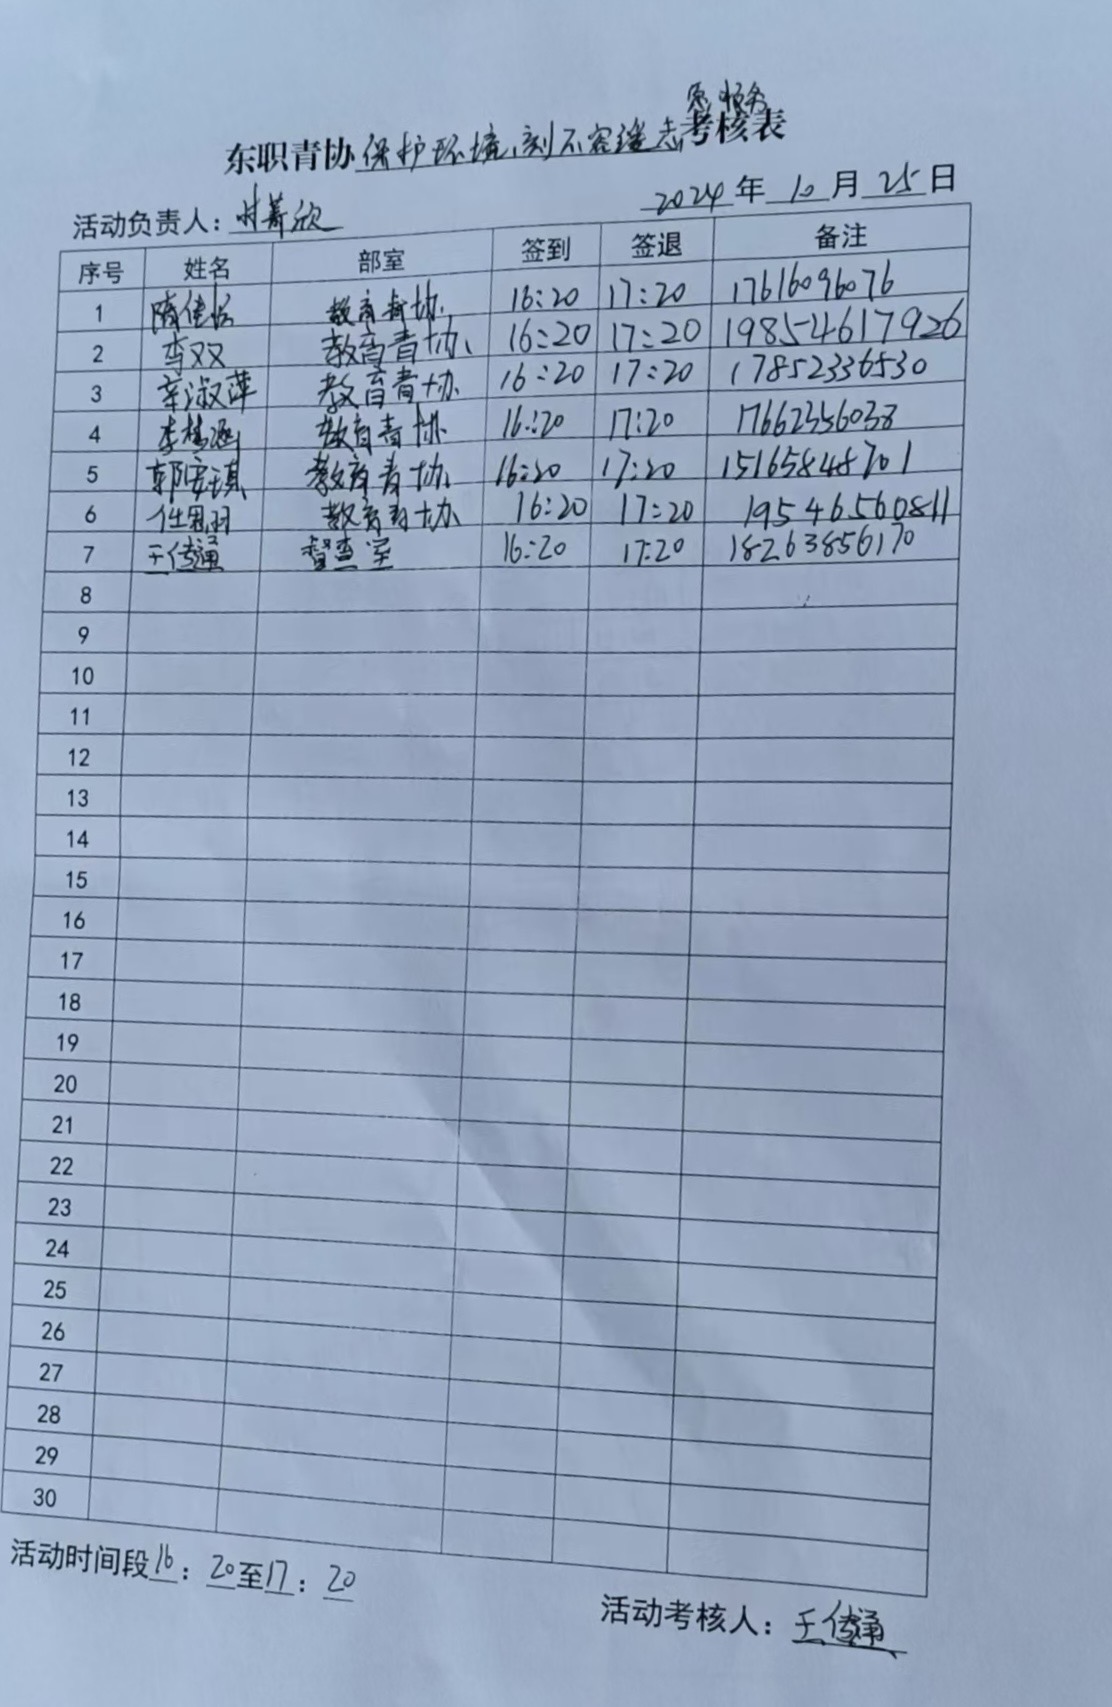 愿服务
东职青协保护环境,刻不容缓志考核表
活动负责人: 欣
2024年10月25日
序号 姓名 部室 签到 签退 备注
1 隋佳 教育青协 16:20 17:20 17616096076
2 李双双 教育青协 16:20 17:20 19854617926
3 辛淑萍 教育青协 16:20 17:20 17852336530
4 李梦涵 教育青协 16:20 17:20 17662356038
5 郭安琪 教育青协 16:20 17:20 15165848701
6 任思羽 教育青协 16:20 17:20 19546560811
7 王传通 督查室 16:20 17:20 18263856170
8
9
10
11
12
13
14
15
16
17
18
19
20
21
22
23
24
25
26
27
28
29
30
活动时间段16:20至17:20
活动考核人:王传通